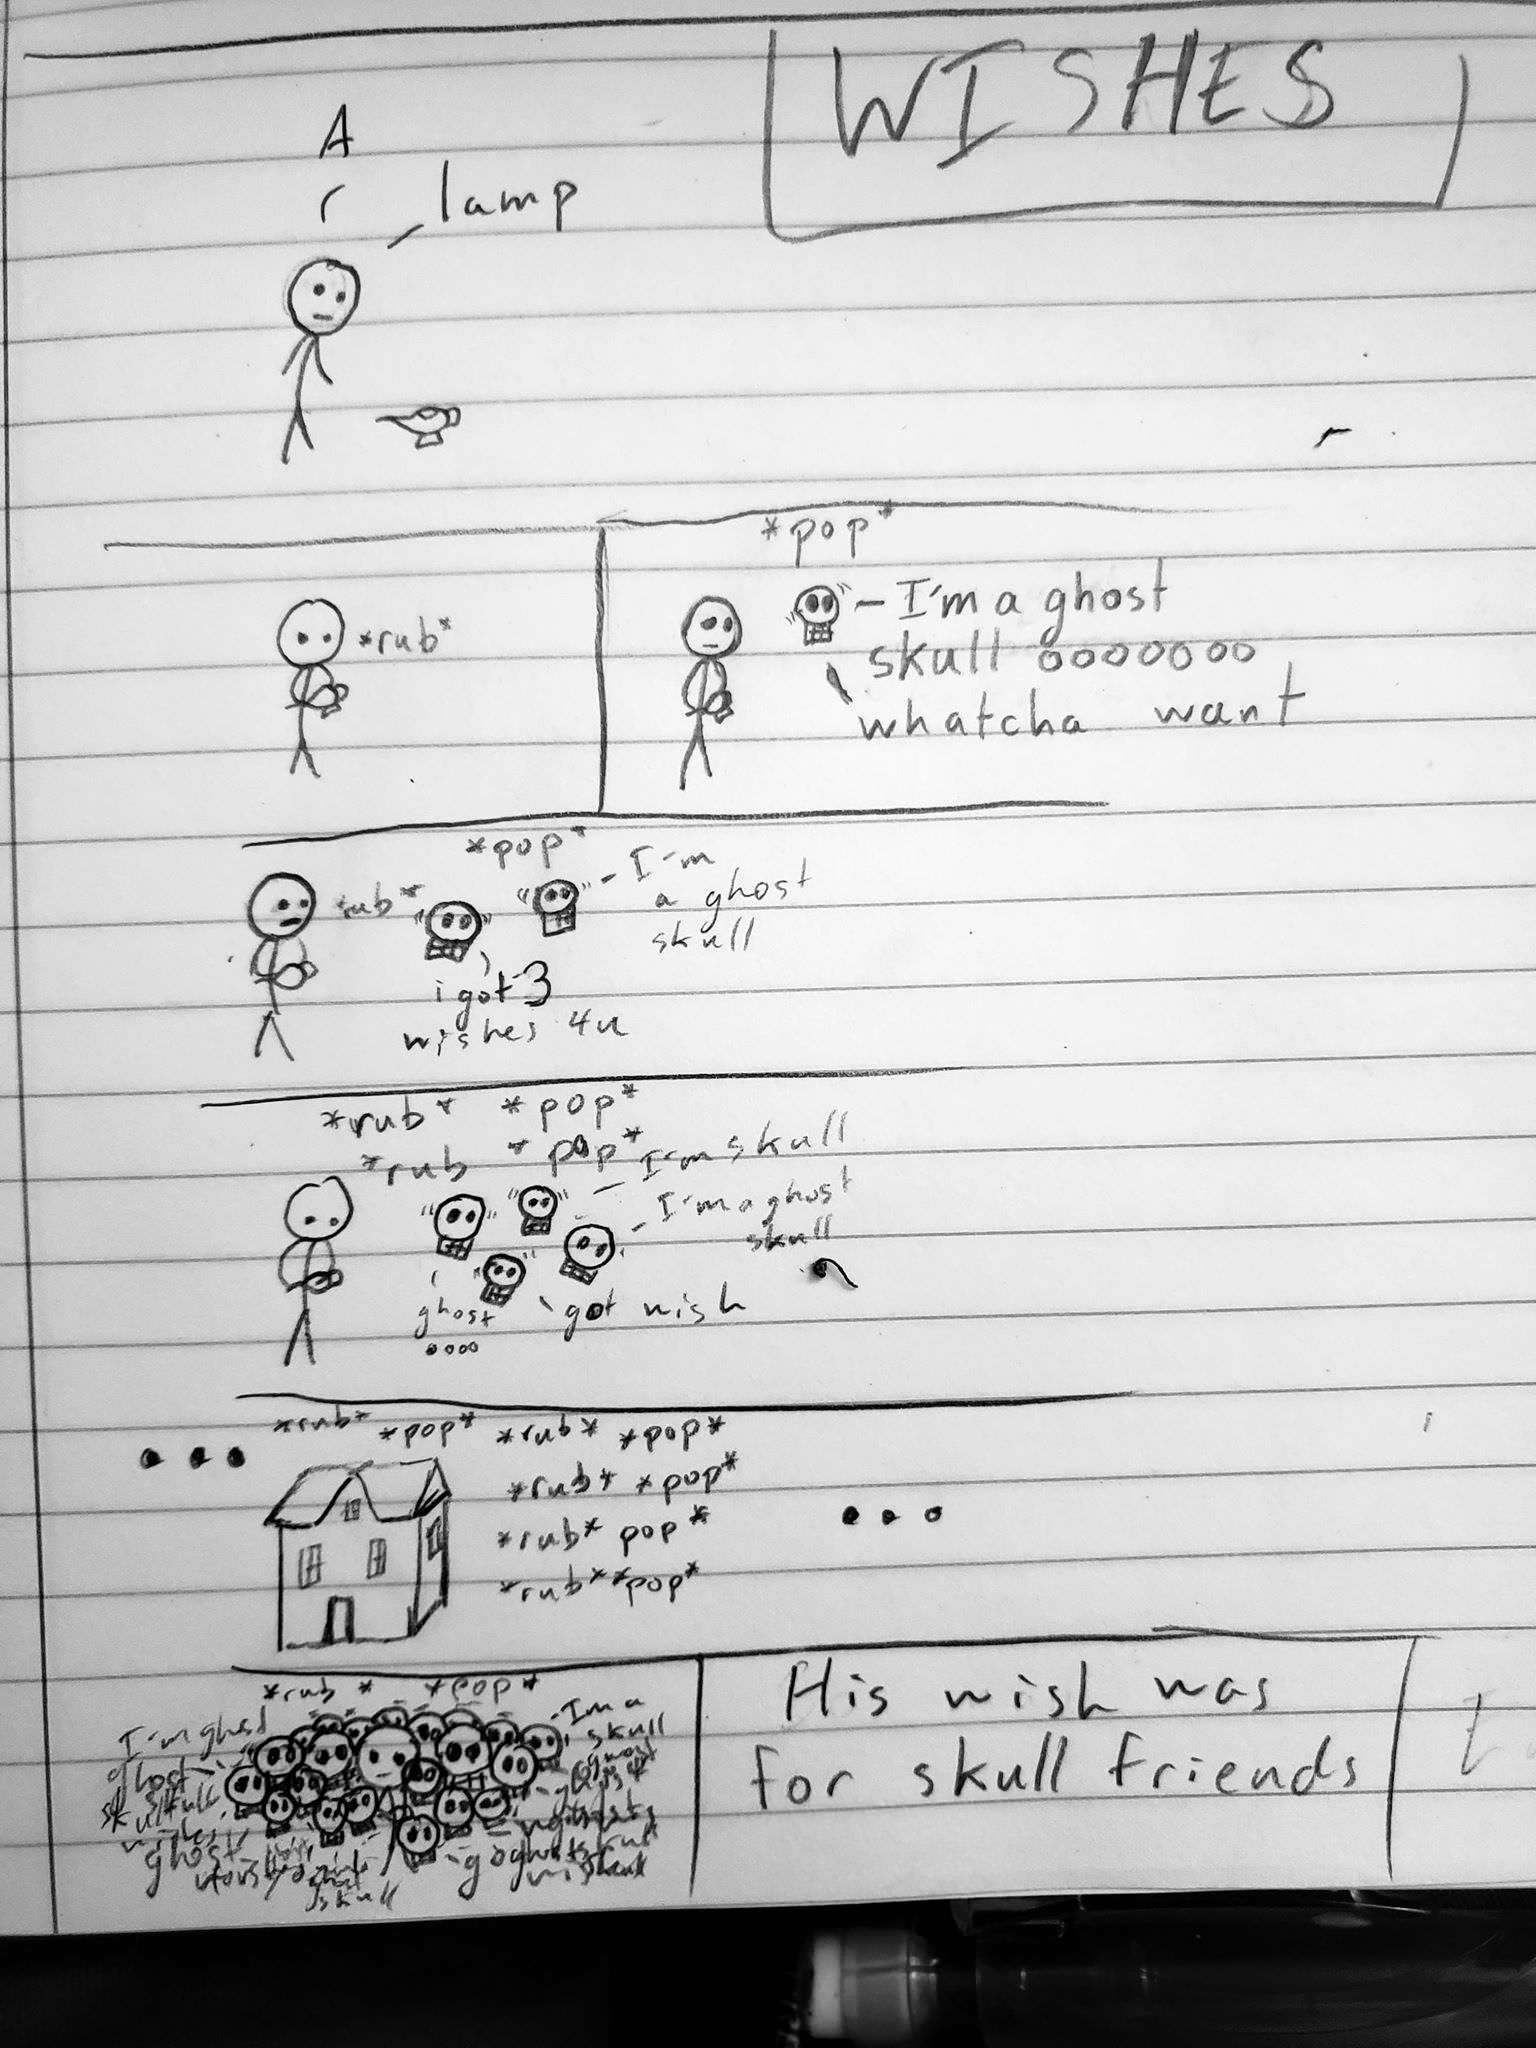 WISHES
A
r
lamp
*rub*
*pop*
I'm a ghost
skull oooooooo
whatcha want
*pop*
*rub*
I'm
a ghost
skull
i got 3
wishes 4u
*rub* *pop*
*rub *pop*
I'm skull
I'm a ghost
skull
ghost
oooo
got wish
... *rub* *pop* *rub* *pop*
*rub* *pop*
*rub* pop*
*rub**pop*
...
*rub* *pop*
I'm ghost
ghost
skull
wishes
ghost
skull
I'm a
skull
His wish was
for skull friends